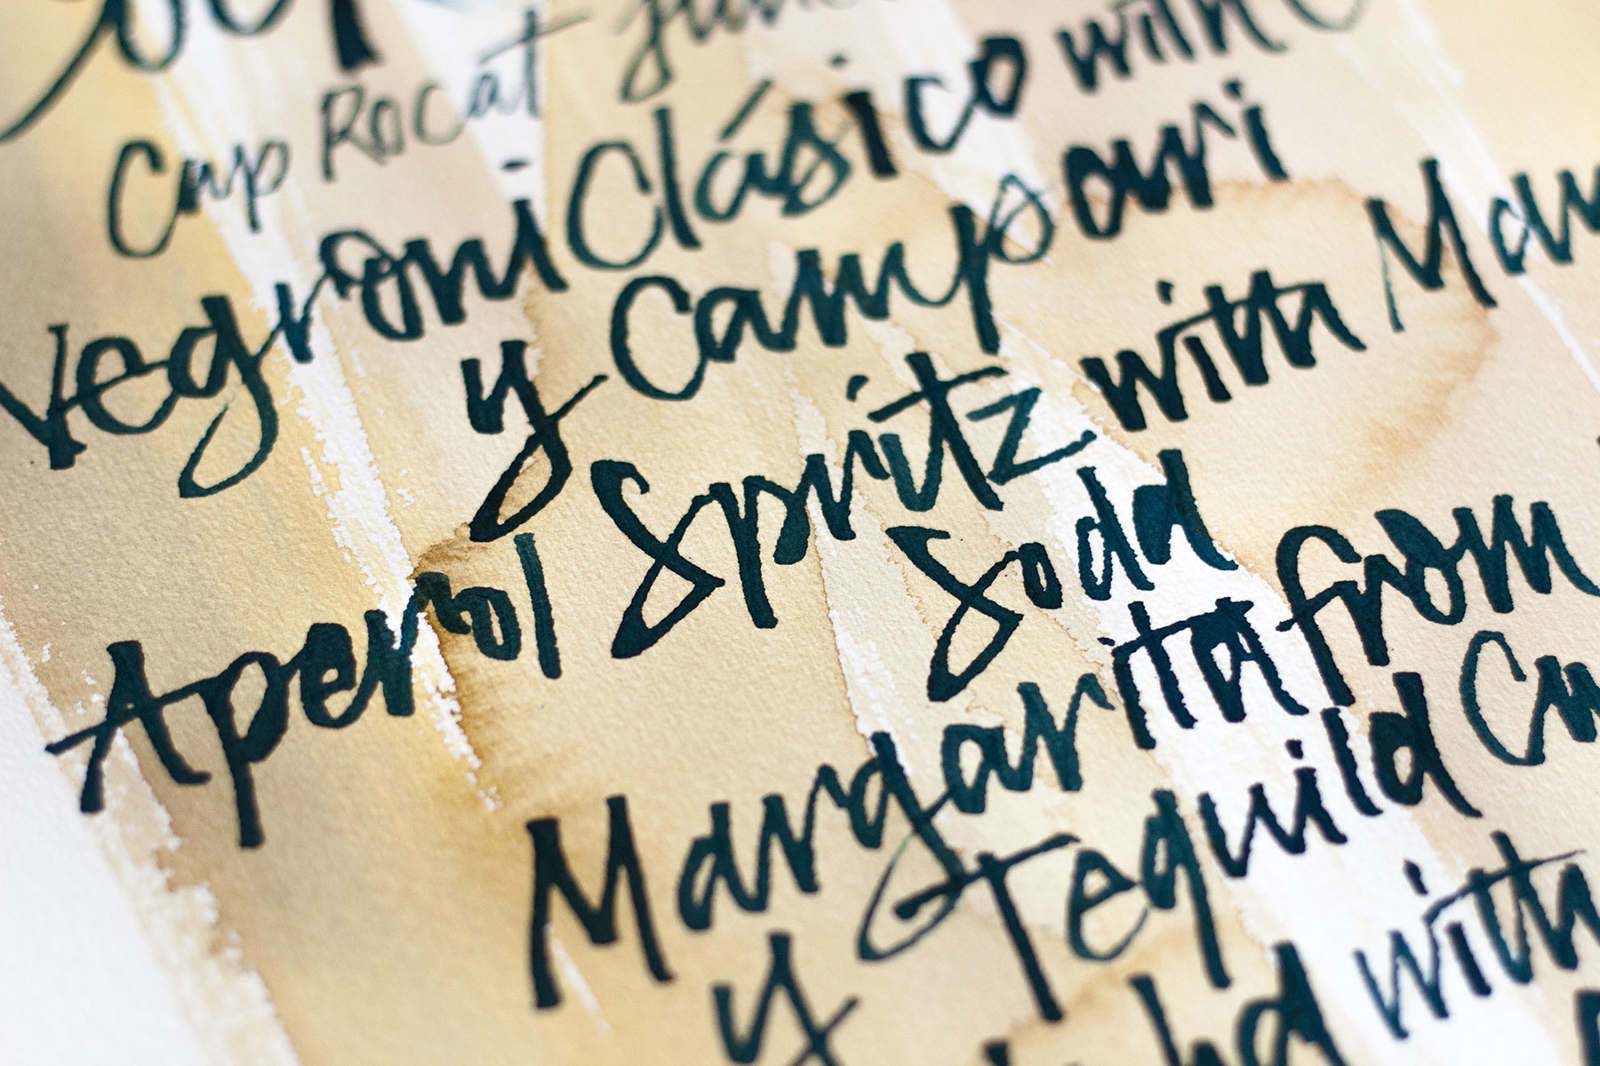 Cap Rocat
Vegroni Clásico with
y Campari
Aperol Spritz with
Soda
Margarita from
y Tequila
with